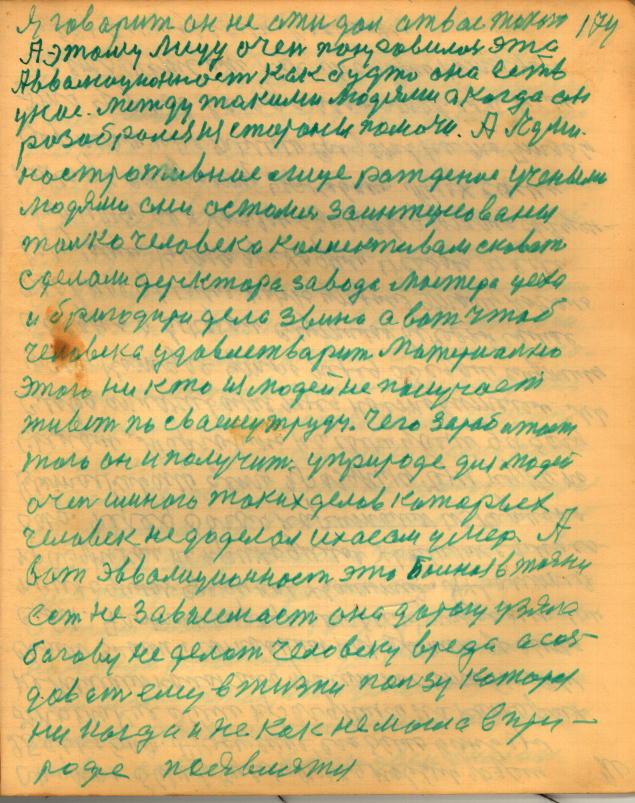 Я говорит он не ожидал от вас такого 174
А этому Лицу очен пондравилос эта
Аввалюционност как будто она есть
у нас. между такими людями а когда он
разобрался и стороны помочи. А Админи.
ностротивное лице рожденое учеными
людями они остолис заинтиресованы
толко человека коллективам сковать
сделали деректора завода мастера цеха
и бригодира дело звина а вот чтоб
человека удовлетварит Материално
этого ни кто из людей не получает
живет по сваему труду. Чего заработает
того он и получит. у природе для людей
очен много таких делов каторых
человек не доделал и хаесом умер. А
вот эвволиционност это
ест не зависимаст она дорогу узяла
багову не делат человеку вреда а соз-
доват ему в жизни ползу каторая
ни когда и не как не могла в при-
роде поевлятся